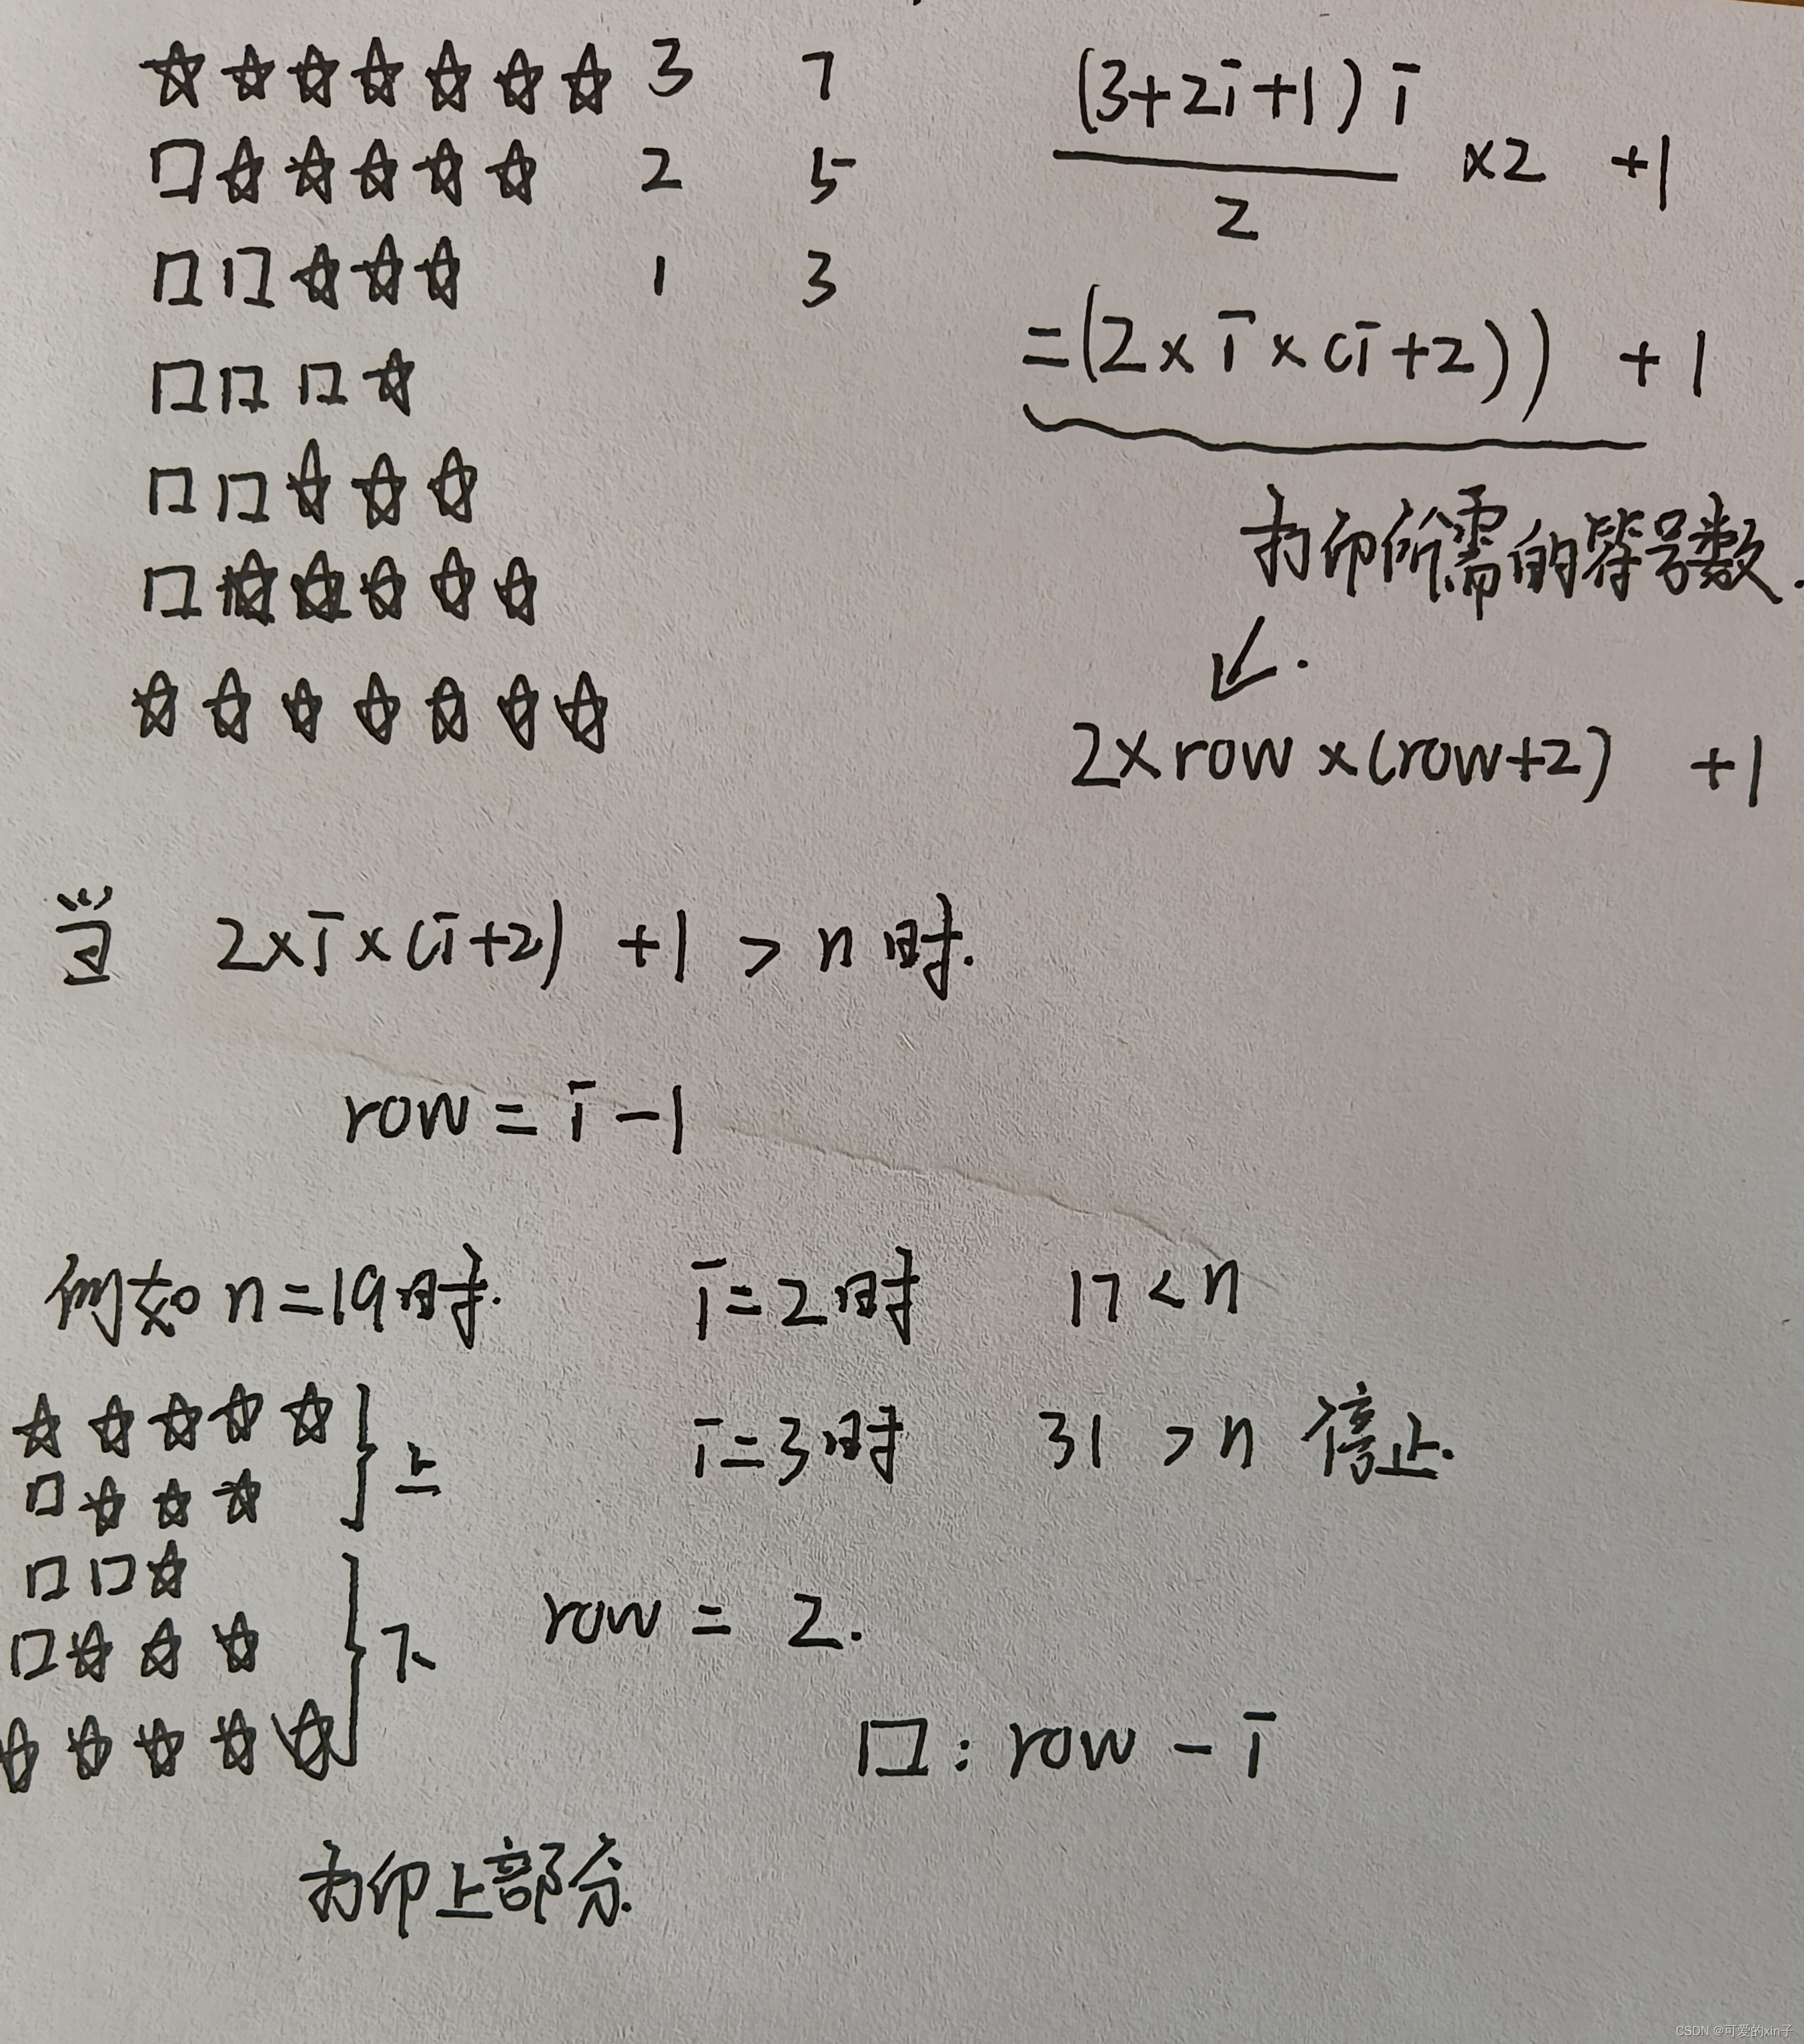 ☆☆☆☆☆☆☆ 3 7
□☆☆☆☆☆ 2 5
□□☆☆☆ 1 3
□□□☆
□□☆☆☆
□☆☆☆☆☆
☆☆☆☆☆☆☆
(3+2i+1)i
2
×2 +1
=(2×i×(i+2)) +1
打印所需的符号数.
↙.
2×row×(row+2) +1
当 2×i×(i+2) +1 > n时.
row = i-1
例如 n=19时. i=2时 17<n
i=3时 31 >n 停止.
☆☆☆☆☆
□☆☆☆
上
□□☆
□☆☆☆
☆☆☆☆☆
下
row = 2.
□: row - i
打印上部分.
CSDN @可爱的xin子